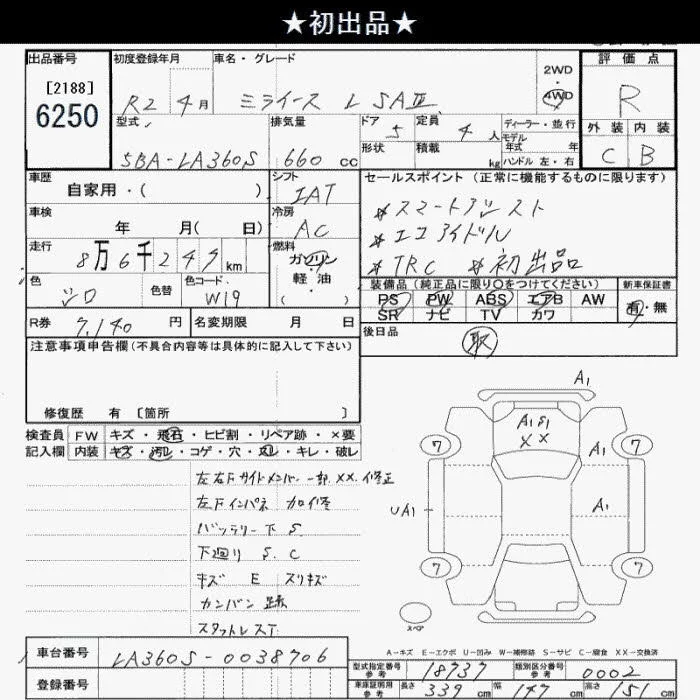 ★初出品★
出品番号 初度登録年月 車名・グレード 評価点
[2188]
6250
R2 4月 ミライース L SAⅢ 2WD・4WD R
型式 排気量 ドア 定員 ディーラー・並行 外装 内装
5BA-LA360S 660cc 5 4人 モデル 年式 年 C B
形状 積載 kg ハンドル 左・右
車歴 シフト セールスポイント (正常に機能するものに限ります)
自家用・( ) IAT
*スマートアシスト
車検 年 月( 日) 冷房 AC
*エコアイドル
走行 8万6千247km 燃料 ガソリン・軽油・( )
*TRC *初出品
色 シロ 色替 色コード W19
装備品(純正品に限り○をつけてください) 新車保証書
PS PW ABS エアB AW 有・無
SR ナビ TV カワ
R券 7,140円 名変期限 月 日
後日品 取
注意事項申告欄(不具合内容等は具体的に記入して下さい)
修復歴 有 [箇所 ]
検査員 FW キズ・飛石・ヒビ割・リペア跡・×要
記入欄 内装 キズ・汚レ・コゲ・穴・スレ・キレ・破レ
左右下サイドメンバー一部XX.修正
左下インパネ 加修
バッテリー下 S
下廻り S.C
キズ E スリキズ
カンバン跡
スタットレスT
A1
A1 S1
X X
7 7
A1
UA1 A1
7 7
スペア
A-キズ E-エクボ U-凹み W-補修跡 S-サビ C-腐食 XX-交換済
車台番号 LA360S-0038706
型式指定番号 参考 18737 類別区分番号 参考 0002
登録番号 車庫証明用 参考 長さ 339cm 幅 147cm 高さ 151cm